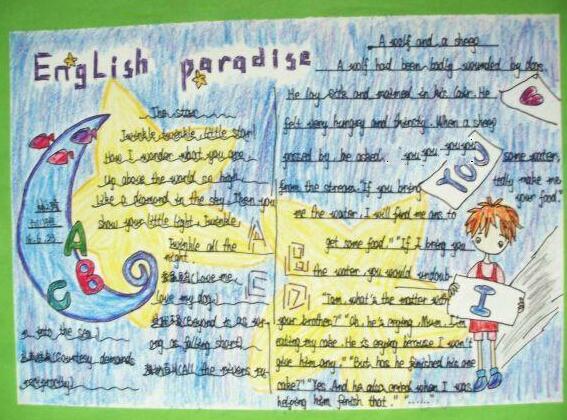 English paradise
The star
Twinkle, twinkle, little star!
How I wonder what you are
Up above the world so high
Like a diamond in the sky. Then you
show your little light, Twinkle,
Twinkle all the
night.
(Love me,
love my dog.)
(Beyond to as
ong as falling short)
(All the rivers
n into the sea)
(Courtesy demands
reciprocity)
A
B
C
A wolf and a sheep
A wolf had been badly wounded by dogs.
He lay sick and maimed in his lair. He
felt very hungry and thirsty. When a sheep
passed by, he asked you you you you
YOU
some water
from the stream. If you bring
tedly make me
your food."
me the water, I will find me ans to
get some food." "If I bring you
the water, you would undoub-
A
B
C
D
I
"Tom, what's the matter with
your brother?" "Oh, he's crying, Mum. I'm
eating my cake. He is crying because I won't
give him any." "But has he finished his one
cake?" "Yes. And he also cried when I was
helping him finish that." "......"